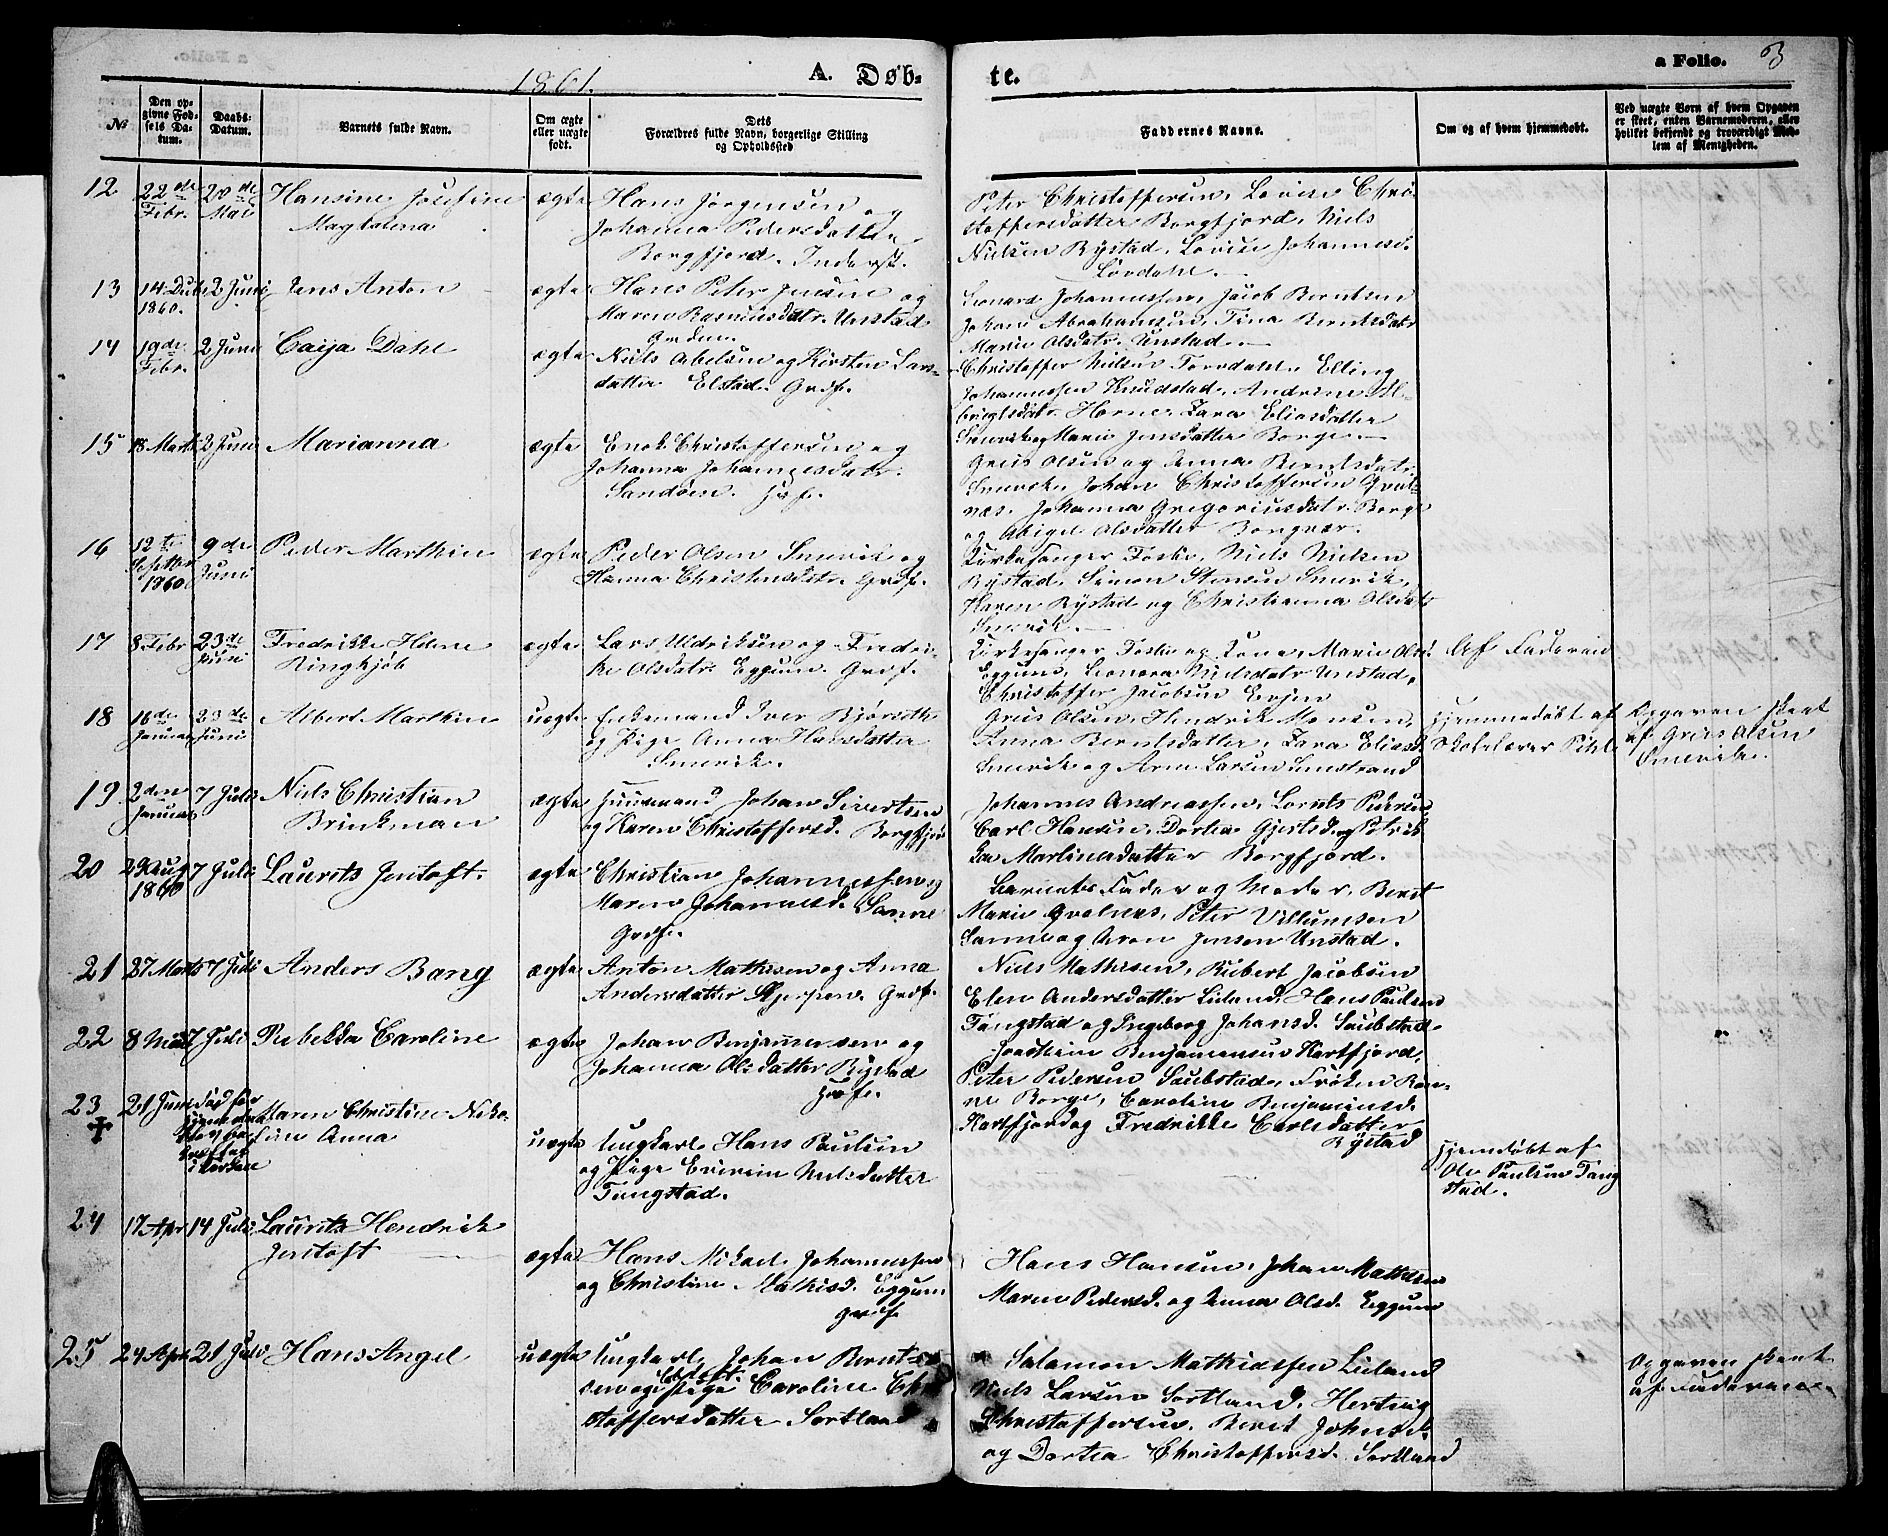 1861.
A. Døb-
te.
a Folio. 3
№
Den op-
givne Fød-
sels Da-
tum.
Daabs-
Datum.
Barnets fulde Navn.
Om ægte
eller uægte
født.
Dets
Forældres fulde Navn, borgerlige Stilling
og Opholdssted
Faddernes Navne.
Om og af hvem hjemmedøbt.
Ved uægte Børn af hvem Opgaven
er skeet, enten Barnemoderen, eller
hvilket bekjendt og troværdigt Med-
lem af Menigheden.
12 22de Febr. 20de Mai Hansine Josefine
Magdalena
ægte Hans Jørgensen og
Johanna Pedersdatter
Borgfjord. Inderst.
Peter Christoffersen, Lovise Chri-
stoffersdatter Borgfjord, Niels
Nielsen Rystad, Lovise Johannesd.
Lovdahl.
13 14 Dcb. 1860. 2 Juni Jens Anton
ægte Hans Peter Jensen og
Maren Rasmusdatr. Unstad
Leonard Johannessen, Jacob Berntsen
Johan Abrahamsen, Tina Berntsdatr
Marie Olsdatr. Unstad.
14 19de Febr. 2 Juni Caija Dahl
ægte Niels Abelsen og Kirsten Lars-
datter Elstad. Grdf.
Christoffer Nilsen Torvdahl, Elling
Johannessen Knudstad, Andrine Al-
brigtsdatr. Horne, Zara Eliasdatter
Smervik og Marie Jensdatter Borge.
15 18 Marts 2 Juni Marianna
ægte Enok Christoffersen og
Johanna Johannesdatr.
Sandøen. Hsf.
Greis Olsen og Anna Berntsdatr.
Smervik, Johan Christoffersen Qval-
næs, Johanna Gregoriusdatr. Borge
og Abigel Olsdatter Borgvær.
16 12te Septbr 1860 9de Juni Peder Marthin
ægte Peder Olsen Smervik og
Hanna Christensdatr. Grdf.
Kirkesanger Foske, Niels Nielsen
Rystad, Simon Stensen Smervik,
Karen Rystad og Christianna Olsdatr
Smervik.
17 8 Febr 23de Juni Fredrikke Helene
Ringkjøb
ægte Lars Uldriksen og Fredri-
ke Olsdatr. Eggum. Grdf.
Kirkesanger Foske og Kone, Marie Olsd.
Eggum, Leonora Nielsdatr Unstad,
Christoffer Jacobsen Evjen
Af Faderen
18 16de Januar 23de Juni Albert Marthin
uægte Enkemand Iver Bjørseth
og Pige Anna Hansdatter
Smervik.
Greis Olsen, Hendrik Monsen,
Anna Berntsdatter, Zara Eliasd.
Smervik og Arn Larsen Limstrand
Hjemmedøbt af
Skolelærer Pihl
Opgaven skeet
af Greis Olsen
Smervik.
19 2den Januar 7 Juli Niels Christian
Brinkman
ægte Huusmand Johan Sivertsen
og Karen Christoffersd. Borgfjord
Johannes Andreassen, Lornts Pedersen
Carl Hansen, Dortea Gjertsd. og Petrik-
ka Martinusdatter Borgfjord.
20 29 Aug 1860 7 Juli Laurits Jentoft.
ægte Christian Johannessen og
Maren Johannesd. Sanne
Grdf.
Barnets Fader og Moder, Beret
Marie Qvalnes, Peter Villumsen
Sanne og Aron Jensen Unstad.
21 27 Marts 7 Juli Anders Bang
ægte Anton Mathisen og Anna
Andersdatter Skjerpen. Grdf.
Niels Mathisen, Rubert Jacobsen
Elen Andersdatter Liland, Hans Paulsen
Tangstad og Ingeborg Johansd. Saubstad
22 8 Mai 7 Juli Rebekka Caroline
ægte Johan Benjaminsen og
Johanna Olsdatter Rystad
Hsf.
Joachim Benjaminsen Kartfjord,
Peter Pedersen Saubstad, Frøken Ron-
ne Borge, Caroline Benjaminsd.
Kartfjord og Fredrikke Carlsdatter
Rystad
23 21 Juni Maren Christine Niko-
line Anna
uægte Ungkarl Hans Paulsen
og Pige Nielsdatter
Tangstad.
Hjemdøbt af
Ole Paulsen Tang
stad.
24 17 Apr 14 Juli Laurits Hendrik
Jentoft
ægte Hans Mikael Johannessen
og Christine Mathisd. Eggum
Grdf.
Hans Hansen, Johan Mathisen
Maren Pedersd. og Anna Olsd. Eggum
25 24 Apr. 21 Juli Hans Angel
uægte Ungkarl Johan Bernt-
sen og Pige Caroline Chri
stoffersdatter Sortland
Salamon Mathiassen Liland
Niels Larsen Sortland, Hertvig
Christoffersen, Beret Johnsd.
og Dortea Christoffersd. Sortland
Opgaven skeet
af Faderen